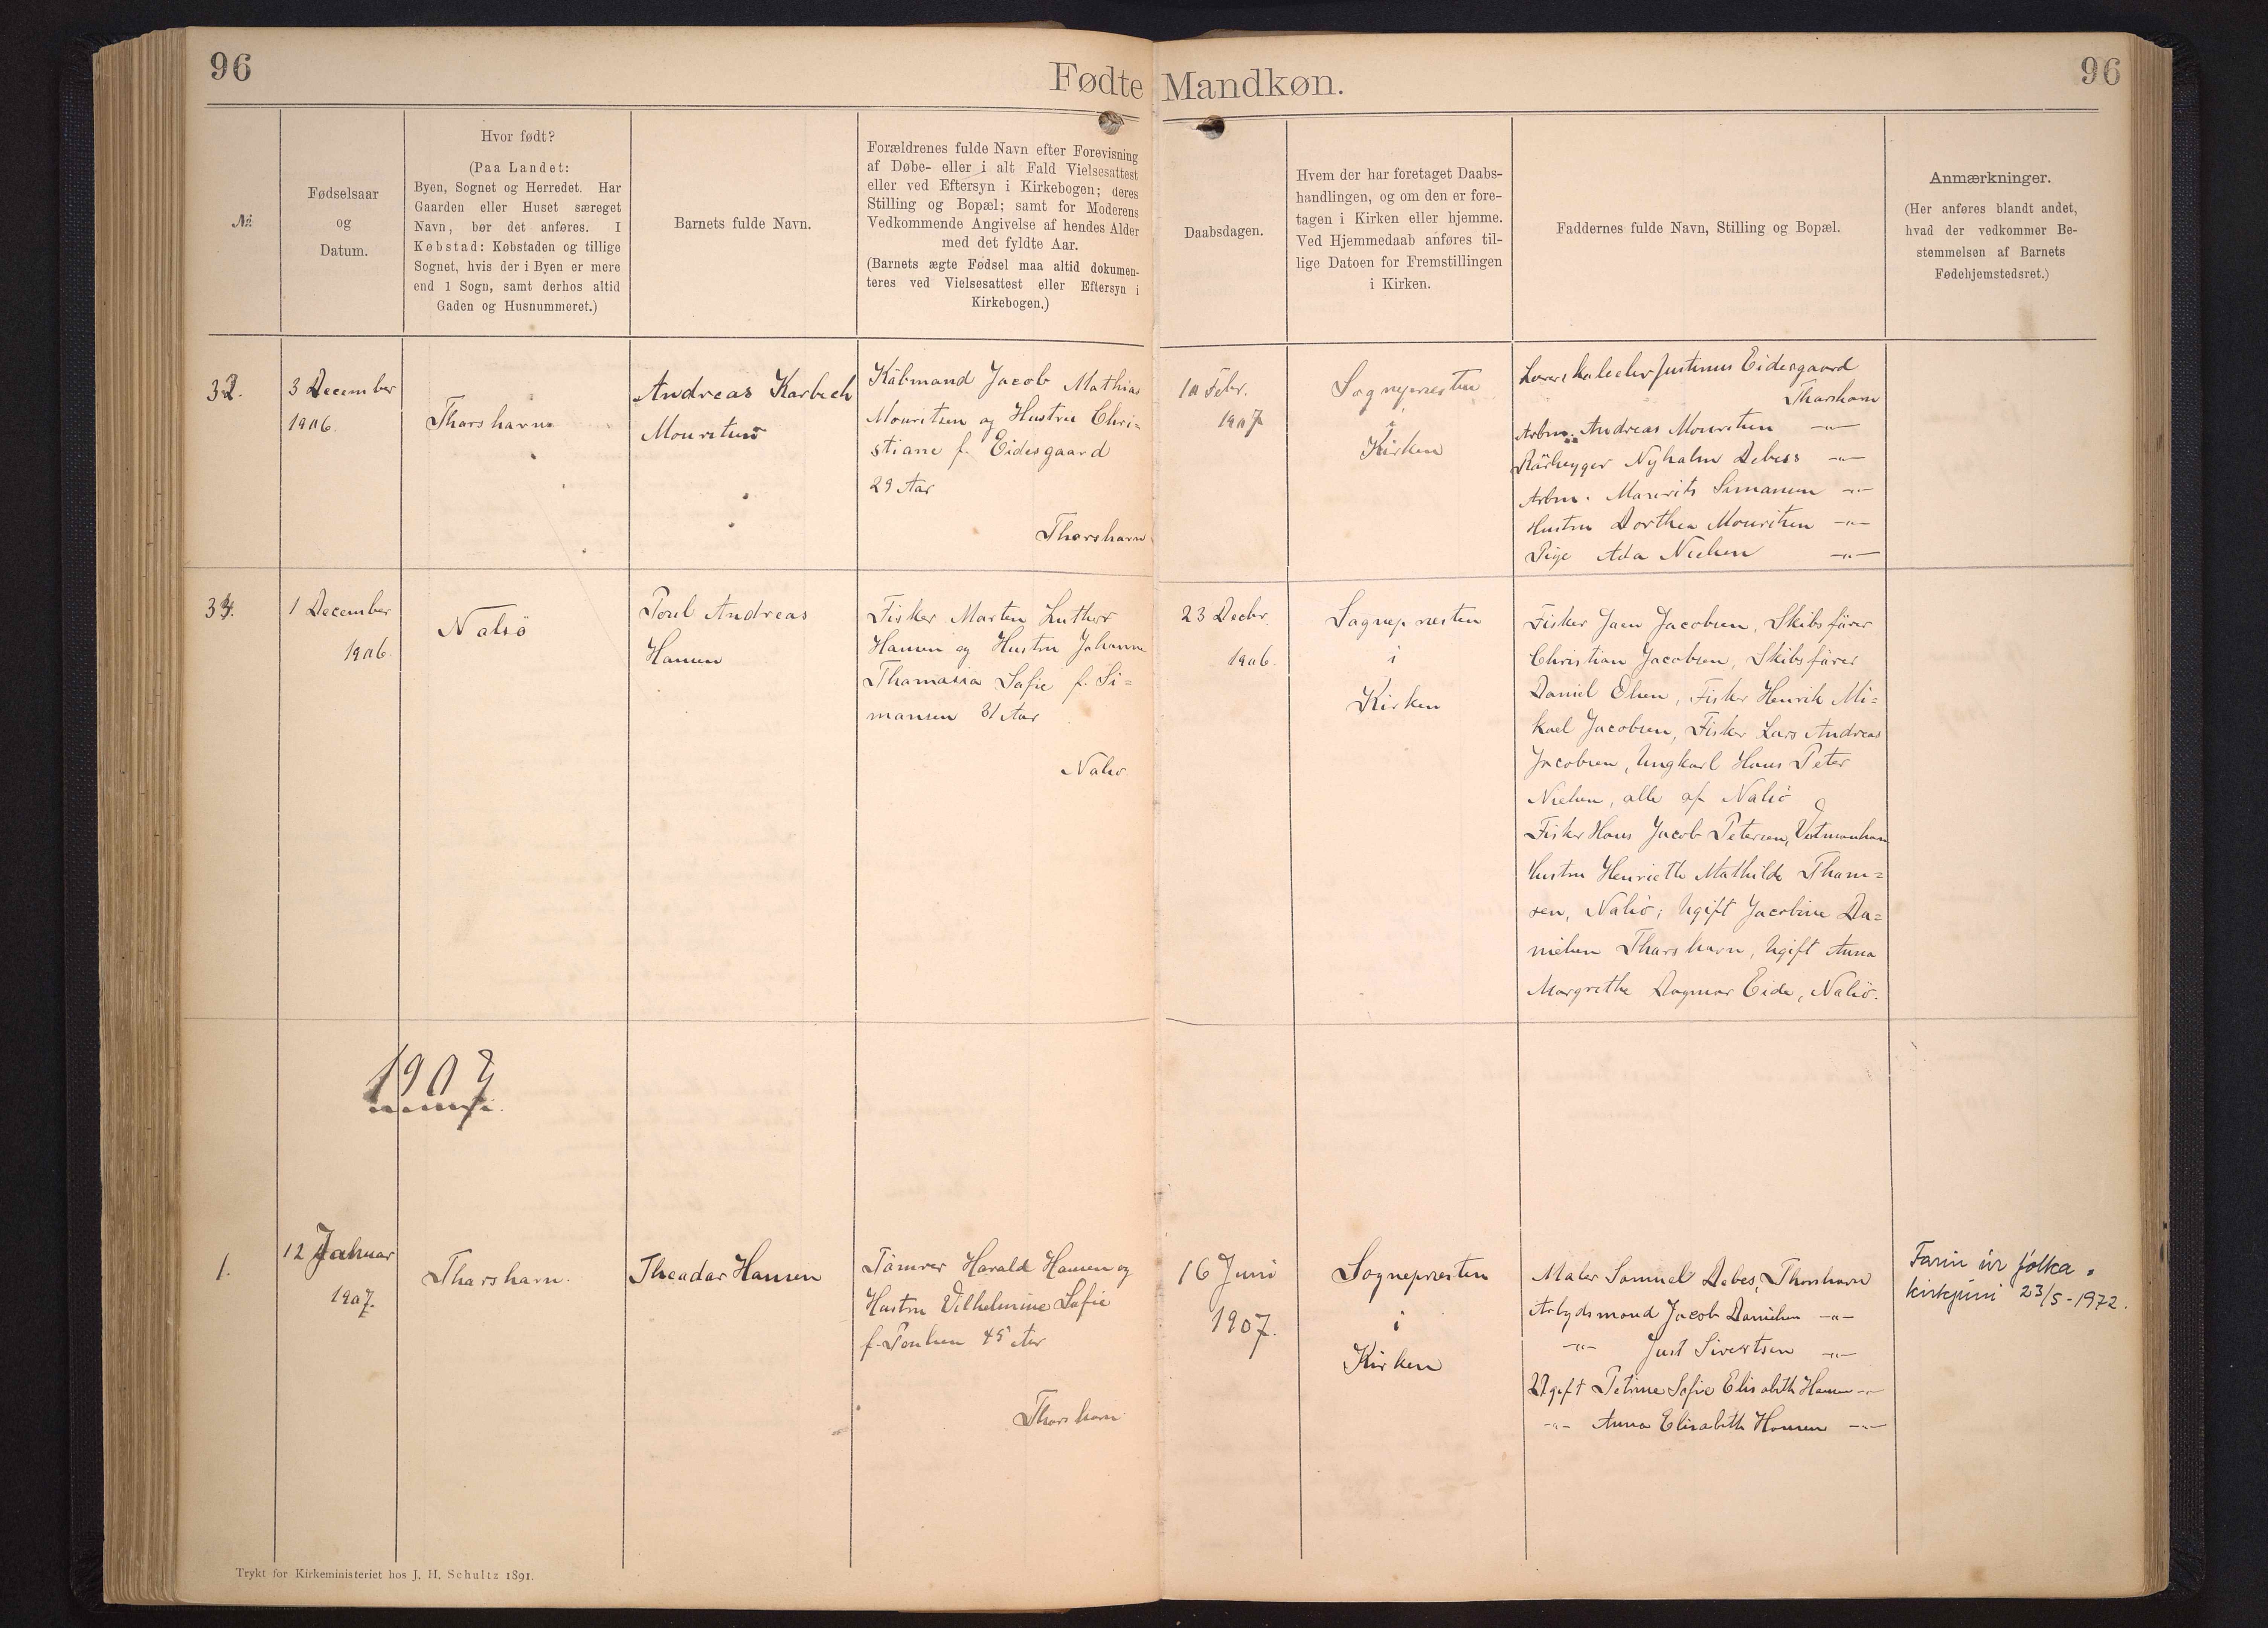 96
Fødte Mandkøn.
96
№.
Fødselsaar
og
Datum.
Hvor født?
(Paa Landet:
Byen, Sognet og Herredet. Har
Gaarden eller Huset særeget
Navn, bør det anføres. I
Købstad: Købstaden og tillige
Sognet, hvis der i Byen er mere
end 1 Sogn, samt derhos altid
Gaden og Husnummeret.)
Barnets fulde Navn.
Forældrenes fulde Navn efter Forevisning
af Døbe- eller i alt Fald Vielsesattest
eller ved Eftersyn i Kirkebogen; deres
Stilling og Bopæl; samt for Moderens
Vedkommende Angivelse af hendes Alder
med det fyldte Aar.
(Barnets ægte Fødsel maa altid dokumen-
teres ved Vielsesattest eller Eftersyn i
Kirkebogen.)
Daabsdagen.
Hvem der har foretaget Daabs-
handlingen, og om den er fore-
tagen i Kirken eller hjemme.
Ved Hjemmedaab anføres til-
lige Datoen for Fremstillingen
i Kirken.
Faddernes fulde Navn, Stilling og Bopæl.
Anmærkninger.
(Her anføres blandt andet,
hvad der vedkommer Be-
stemmelsen af Barnets
Fødehjemstedsret.)
3 December
1906.
Thorshavn
Andreas
Mouritsen
Købmand Jacob Mathias
Mouritsen og Hustru Chri=
stiane f. Eidesgaard
29 Aar
Thorshavn
10 Febr.
1907
Sognepræsten
i
Kirken
Justinus Eidesgaard
Thorshavn
Arbm. Andreas Mouritsen -"-
Nyholm Debess -"-
Arbm. Mourits Simonsen -"-
Hustru Dorthea Mouritsen -"-
Pige Ada Nielsen -"-
34.
1 December
1906.
Nolsö
Poul Andreas
Hansen
Fisker Morten Luther
Hansen og Hustru Johanne
Thomasia Sofie f. Si=
monsen 31 Aar
Nolsö.
23 Decbr.
1906.
Sognepræsten
i
Kirken
Fisker Joen Jacobsen, Skibsfører
Christian Jacobsen, Skibsfører
Daniel Olsen, Fisker Henrik Mi=
kael Jacobsen, Fisker Lars Andreas
Jacobsen, Ungkarl Hans Peter
Nielsen, alle af Nolsö
Fisker Hans Jacob Petersen, Vestmanhavn
Hustru Henriette Mathilde Thom=
sen, Nolsö; Ugift Jacobine Da=
nielsen Thorshavn, Ugift Anna
Margrethe Dagmar Eide, Nolsö.
1907
1.
12 Januar
1907.
Thorshavn.
Theodor Hansen
Tömrer Harald Hansen og
Hustru Vilhelmine Sofie
f. Poulsen 45 Aar
Thorshavn
16 Juni
1907.
Sognepræsten
i
Kirken
Maler Samuel Debes, Thorshavn
Arbejdsmand Jacob Danielsen -"-
-"- Just Sivertsen -"-
Ugift Petrine Sofie Elisabeth Hansen -"-
-"- Anna Elisabeth Hansen -"-
Farin úr fólka=
kirkjuni 23/5-1972.
Trykt for Kirkeministeriet hos J. H. Schultz 1891.